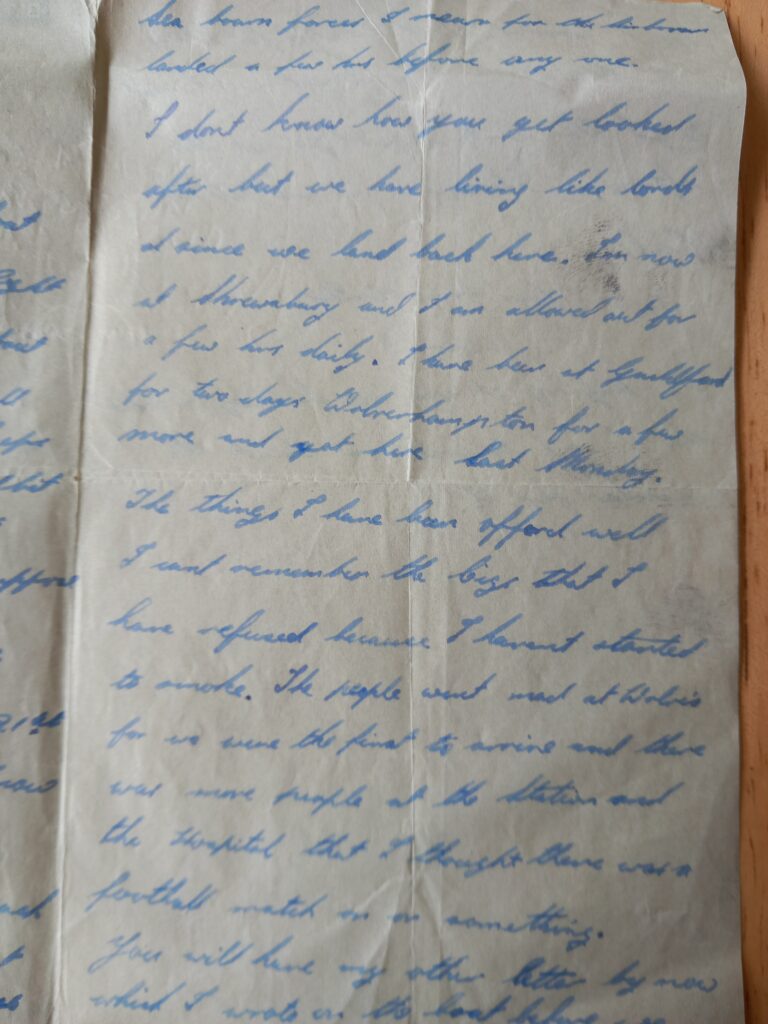 Sea bourn forces I mean for the airborne
landed a few hrs before any one.
I dont know how you get looked
after but we have living like lords
since we land back here. Im now
at Shrewsbury and I am allowed out for
a few hrs daily. I have been at Guildford
for two days Wolverhampton for a few
more and got here last Monday.
The things I have been offerd well
I cant remember the cigs that I
have refused because I havent started
to smoke. The people went mad at Wolves
for we were the first to arrive and there
was more people at the station and
the Hospital that I thought there was a
football match on or something.
You will have my other letter by now
which I wrote on the boat before
21st